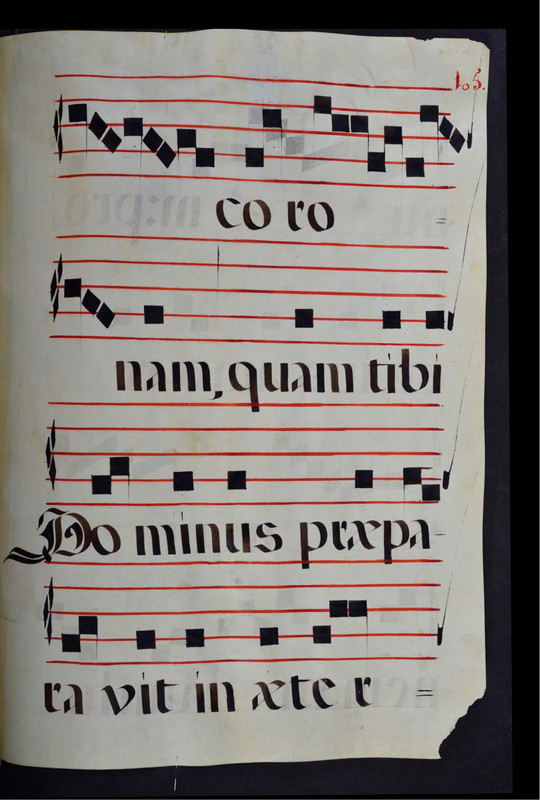 105.
co ro =
nam, quam tibi
Do minus præpa-
ra vit in æte r =